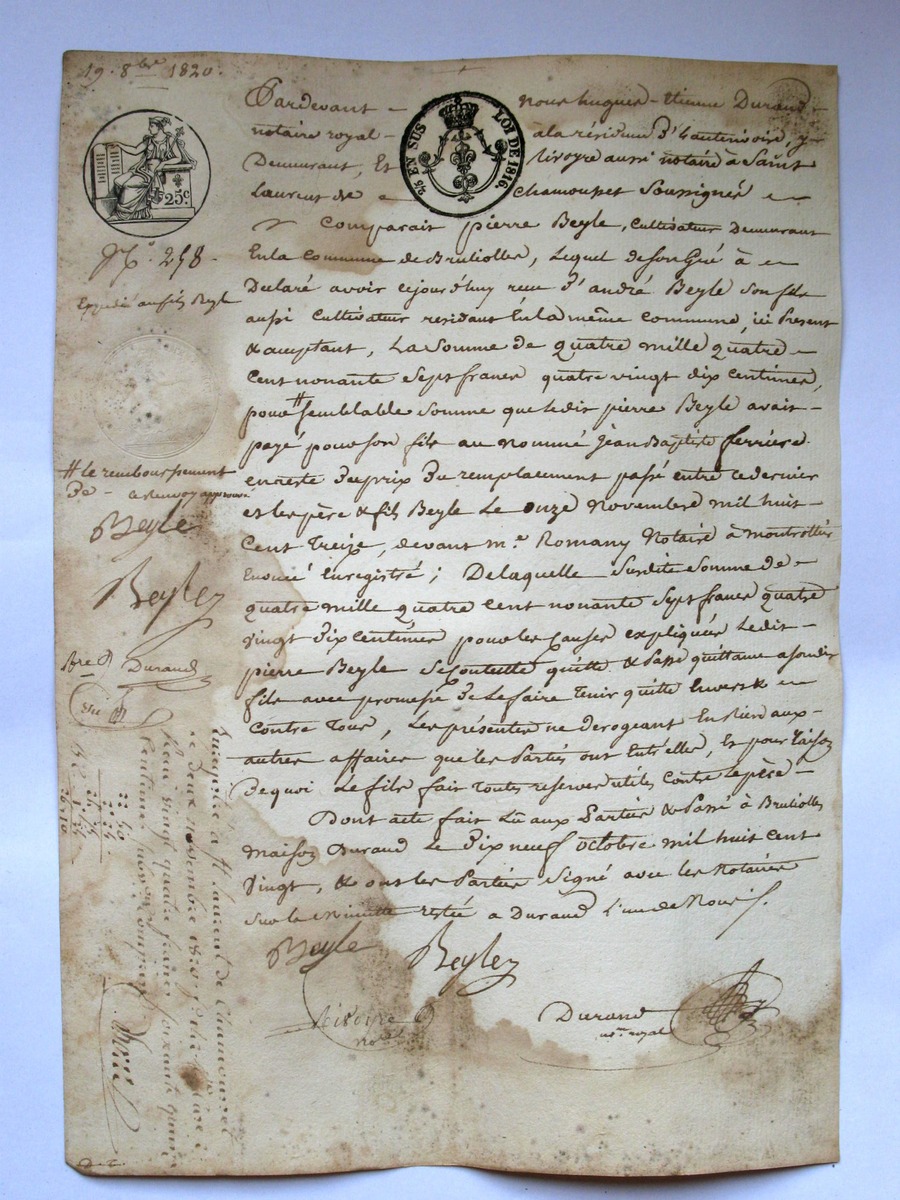 19. 8bre 1820.
Pardevant nous hugues-Etienne Durand
notaire royal à la résidence d'hauterivoire, y
Demeurant, Et livoyre aussi notaire à Saint
Laurent de Chamousset Soussignés
25 EN SUS LOI DE 1816
25c
comparait pierre Beyle, cultivateur Demeurant
N.o 258
En la Commune de Brullolles, Lequel de son Gré à
Declaré avoir cejourd'huy reçu d'andré Beyle son fils
Expédié au fils Beyle
aussi Cultivateur residant En la même commune, ici Present
& acceptant, La Somme de quatre mille quatre
Cent nonante Sept francs quatre vingt dix centimes,
pour # semblable Somme que ledit pierre Beyle avait
payé pour son fils au nommé Jean Baptiste ferriere
# le remboursement
De - ce renvoy approuvé
en reste du prix du remplacement passé entre ce dernier
et les père & fils Beyle Le onze Novembre mil huit
Beyle
Cent Treize, devant m.e Romany Notaire à montrottier
Beyle
Enregistré; De laquelle Susdite Somme de
quatre mille quatre cent nonante Sept francs quatre
vingt dix centimes pour les causes expliquées Ledit
pierre Beyle Se Contente quitte & Passe quittance a sondit
Durand
fils avec promesse de Le faire Tenir quitte Envers &
Contre Tous, Les présentes ne derogeant En Rien aux
autres affaires que les Parties ont Entr'elles, Et pour raison
Dequoi Le fils fait Toutes reserves utiles Contre le père
Dont acte fait Lu aux Parties & Passé à Brullolles
maison Durand Le Dix neuf octobre mil huit cent
vingt, & ont les Parties Signé avec les Notaires
Sur la Minutte restée a Durand L'un de Nous
Beyle Beyle
Livoire
no.re
Durand
no.re royal
Enregistré à St Laurent de Chamousset
le deux novembre 1820
vingt quatre francs soixante quinze
centimes